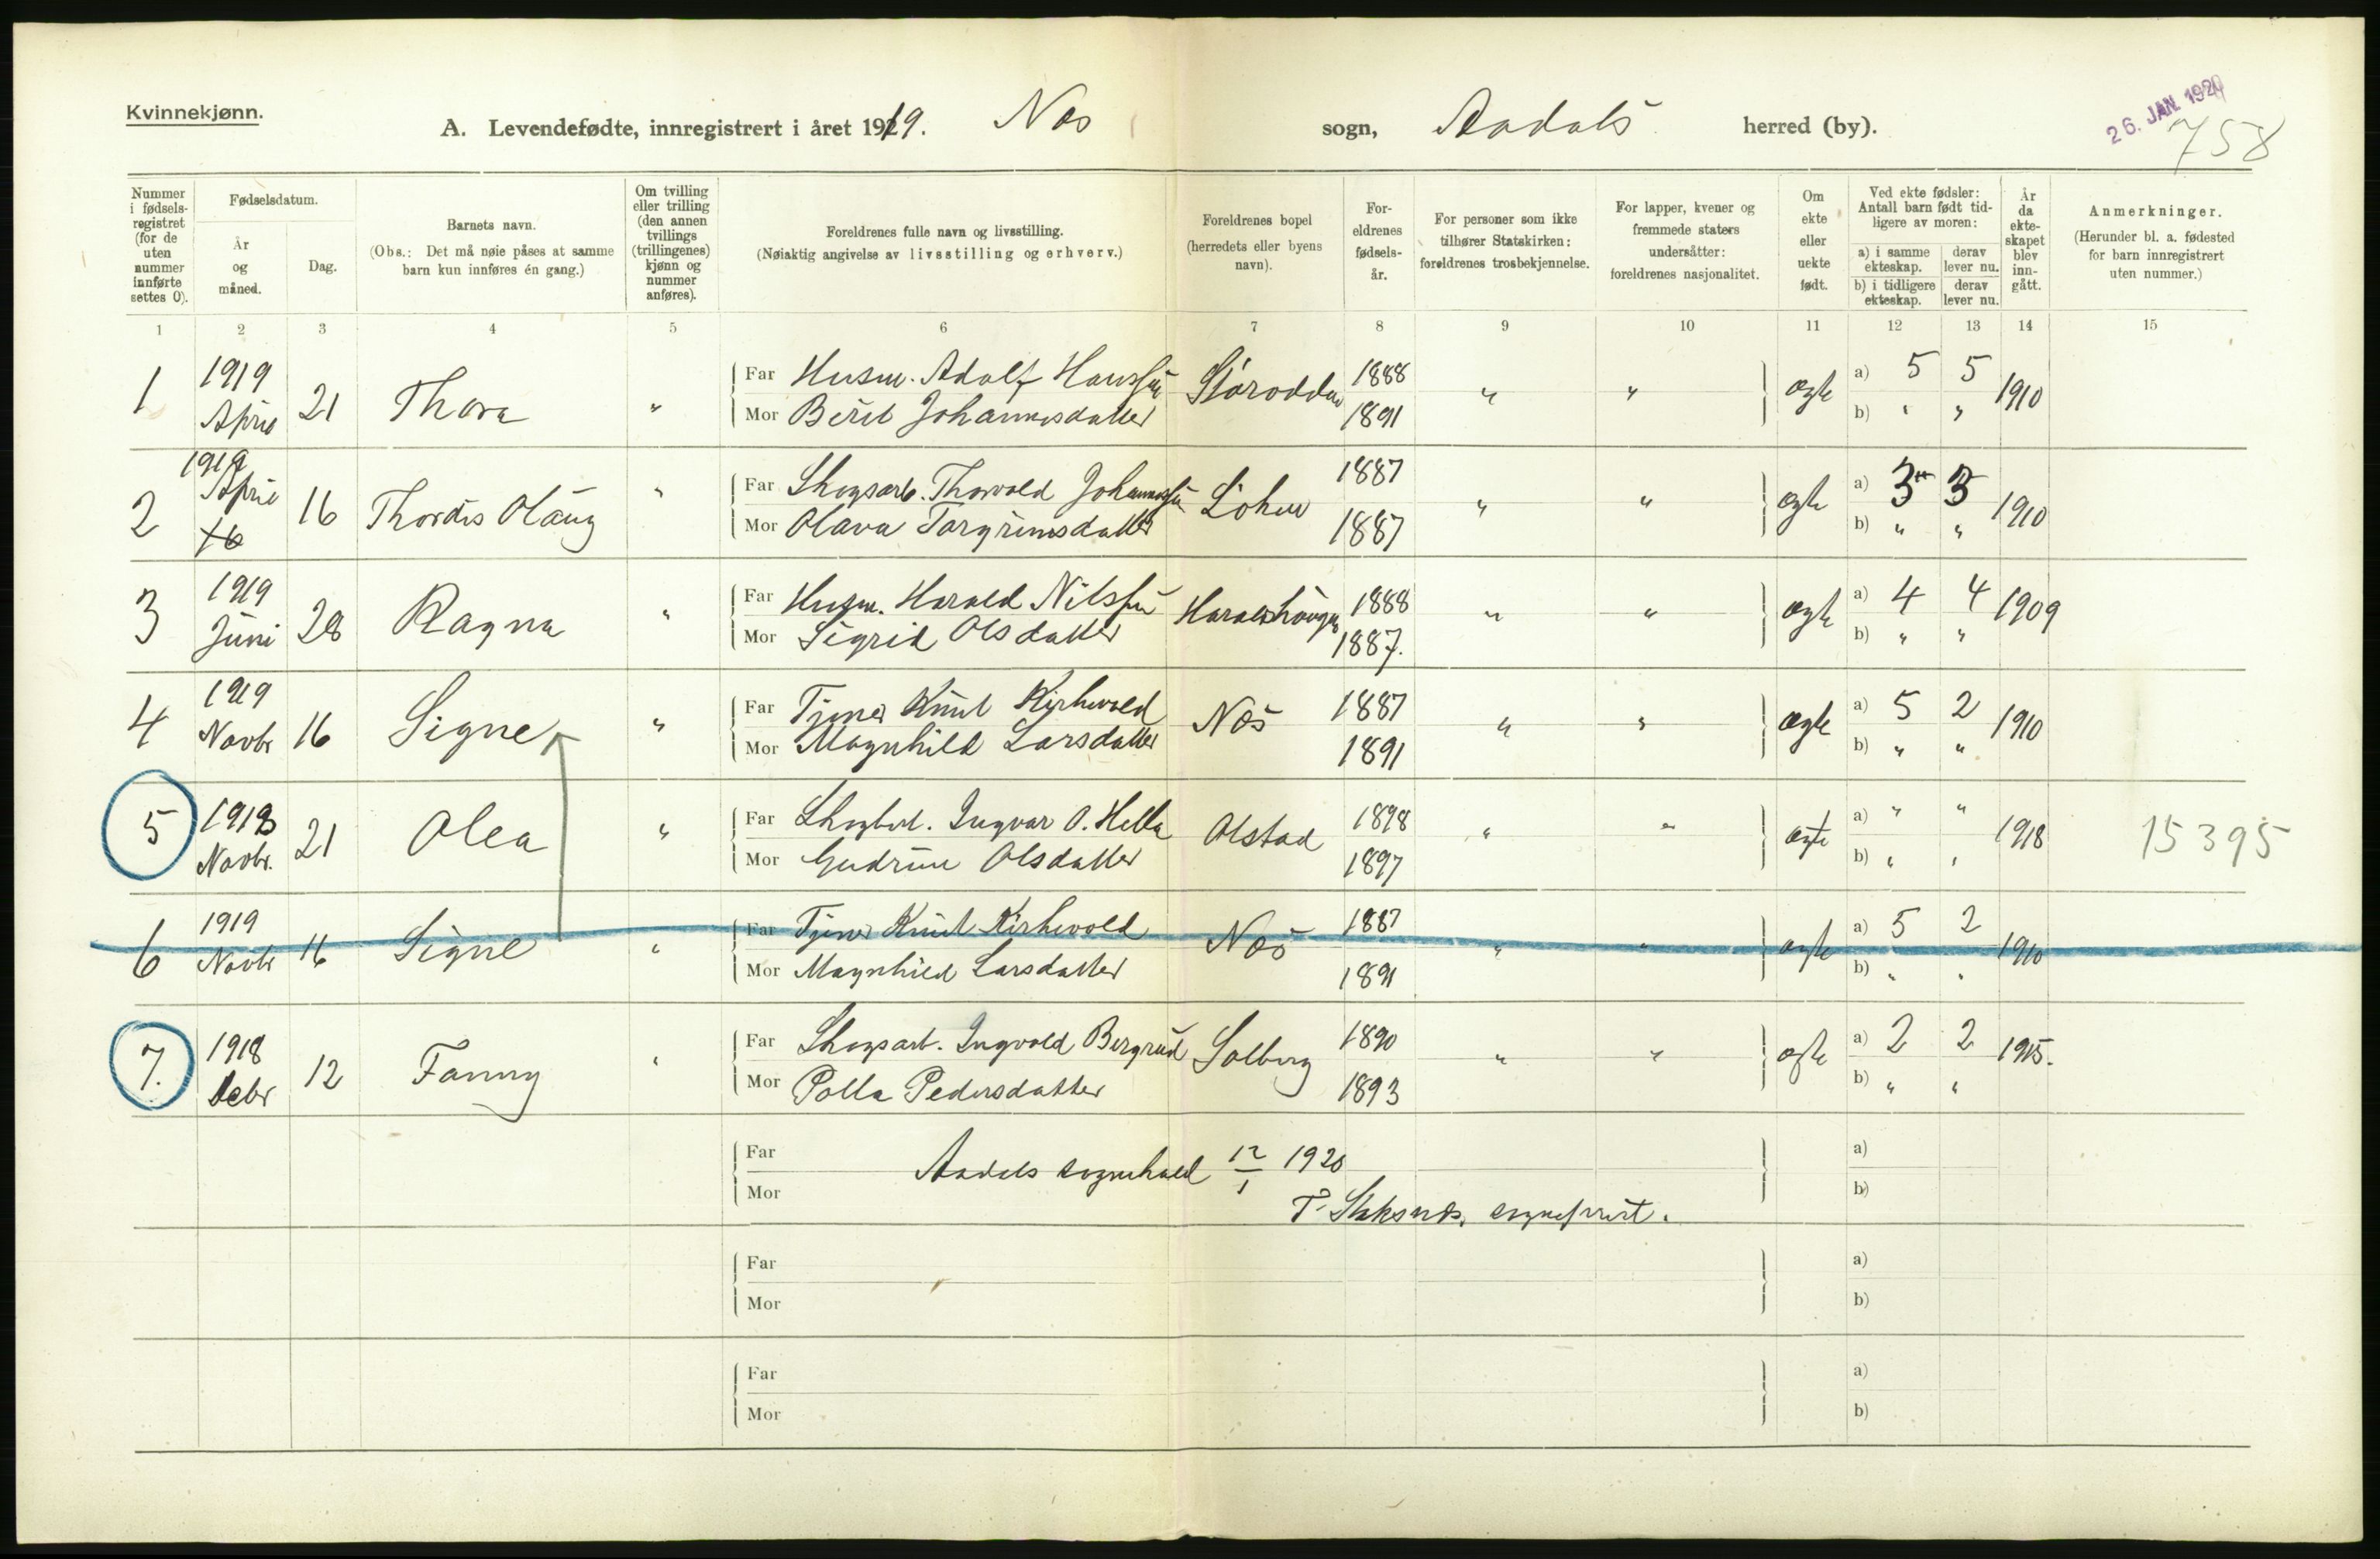 Kvinnekjønn.
A. Levendefødte, innregistrert i året 1919. Nes sogn, Aadals herred (by).
26. JAN. 1920
758
Nummer i fødsels-registret (for de uten nummer innførte settes 0).
Fødselsdatum.
År og måned.
Dag.
Barnets navn.
(Obs.: Det må nøie påses at samme barn kun innføres én gang.)
Om tvilling eller trilling (den annen tvillings (trillingenes) kjønn og nummer anføres).
Foreldrenes fulle navn og livsstilling.
(Nøiaktig angivelse av livsstilling og erhverv.)
Foreldrenes bopel (herredets eller byens navn).
For-eldrenes fødsels-år.
For personer som ikke tilhører Statskirken: foreldrenes trosbekjennelse.
For lapper, kvener og fremmede staters undersåtter: foreldrenes nasjonalitet.
Om ekte eller uekte født.
Ved ekte fødsler: Antall barn født tid-ligere av moren:
a) i samme ekteskap. derav lever nu.
b) i tidligere ekteskap. derav lever nu.
År da ekte-skapet blev inn-gått.
Anmerkninger.
(Herunder bl. a. fødested for barn innregistrert uten nummer.)
1 2 3 4 5 6 7 8 9 10 11 12 13 14 15
1 1919 April 21 Thora " Far Husm. Adolf Hanssøn Storodden 1888 " " ægte a) 5 5 1910
Mor Berit Johannesdatter 1891 b) " "
2 1919 April 16 16 Thordis Olaug " Far Skogsarb. Thorvald Johannessøn 1887 " " ægte a) 3 3 1910
Mor Olava Torgrimsdatter 1887 b) " "
3 1919 Juni 28 Ragna " Far Husm. Harald Nilssøn Haraldshaugen 1888 " " ægte a) 4 4 1909
Mor Sigrid Olsdatter 1887. b) " "
4 1919 Novbr 16 Signe " Far Tjener Knut Kirkevold Nes 1887 " " ægte a) 5 2 1910
Mor Magnhild Larsdatter 1891 b) " "
5 1918 Novbr. 21 Olea " Far Ingvar O. Hella Olstad 1898 " " ægte a) " " 1918 15395
Mor Gudrun Olsdatter 1897 b) " "
6 1919 Novbr 16 Signe " Far Tjener Knut Kirkevold Nes 1887 " " ægte a) 5 2 1910
Mor Magnhild Larsdatter 1891 b) " "
7. 1918 Debr 12 Fanny " Far Skogsarb. Ingvald Bergrud Solberg 1890 " " ægte a) 2 2 1915.
Mor Polla Pedersdatter 1893 b) " "
Far a)
Aadals sognekald 12/1 1920
Mor b)
sogneprest.
Far a)
Mor b)
Far a)
Mor b)